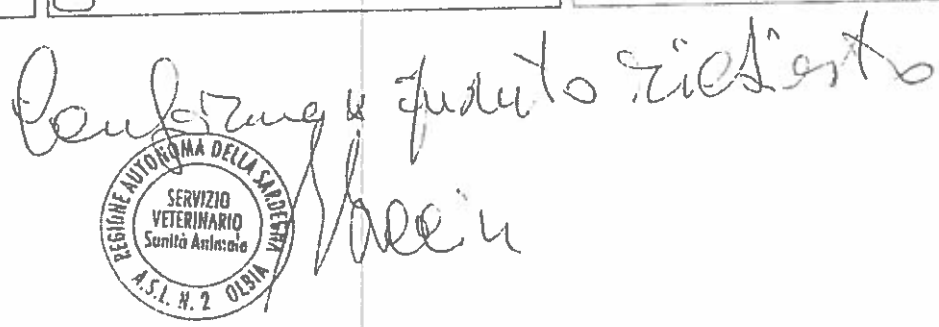 Conforme a quanto richiesto
REGIONE AUTONOMA DELLA SARDEGNA
SERVIZIO
VETERINARIO
Sanità Animale
A.S.L. N. 2 OLBIA